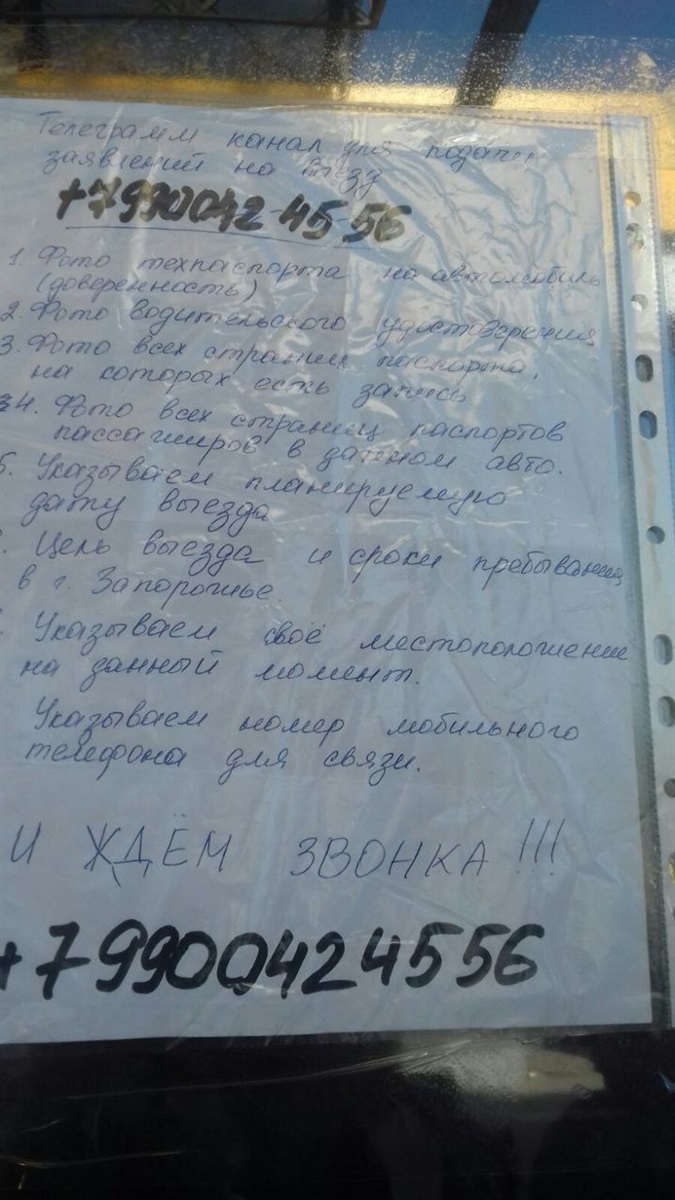 Телеграмм канал для подачи
заявлений на выезд
+7990042-45-56
1. Фото техпаспорта на автомобиль
(доверенность)
2. Фото водительского удостоверения
3. Фото всех страниц паспорта,
на которых есть запись
34. Фото всех страниц паспортов
пассажиров в данном авто.
5. Указываем планируемую
дату выезда
Цель выезда и сроки пребывания
в г. Запорожье.
Указываем своё местоположение
на данный момент.
Указываем номер мобильного
телефона для связи.
И ЖДЁМ ЗВОНКА!!!
+79900424556